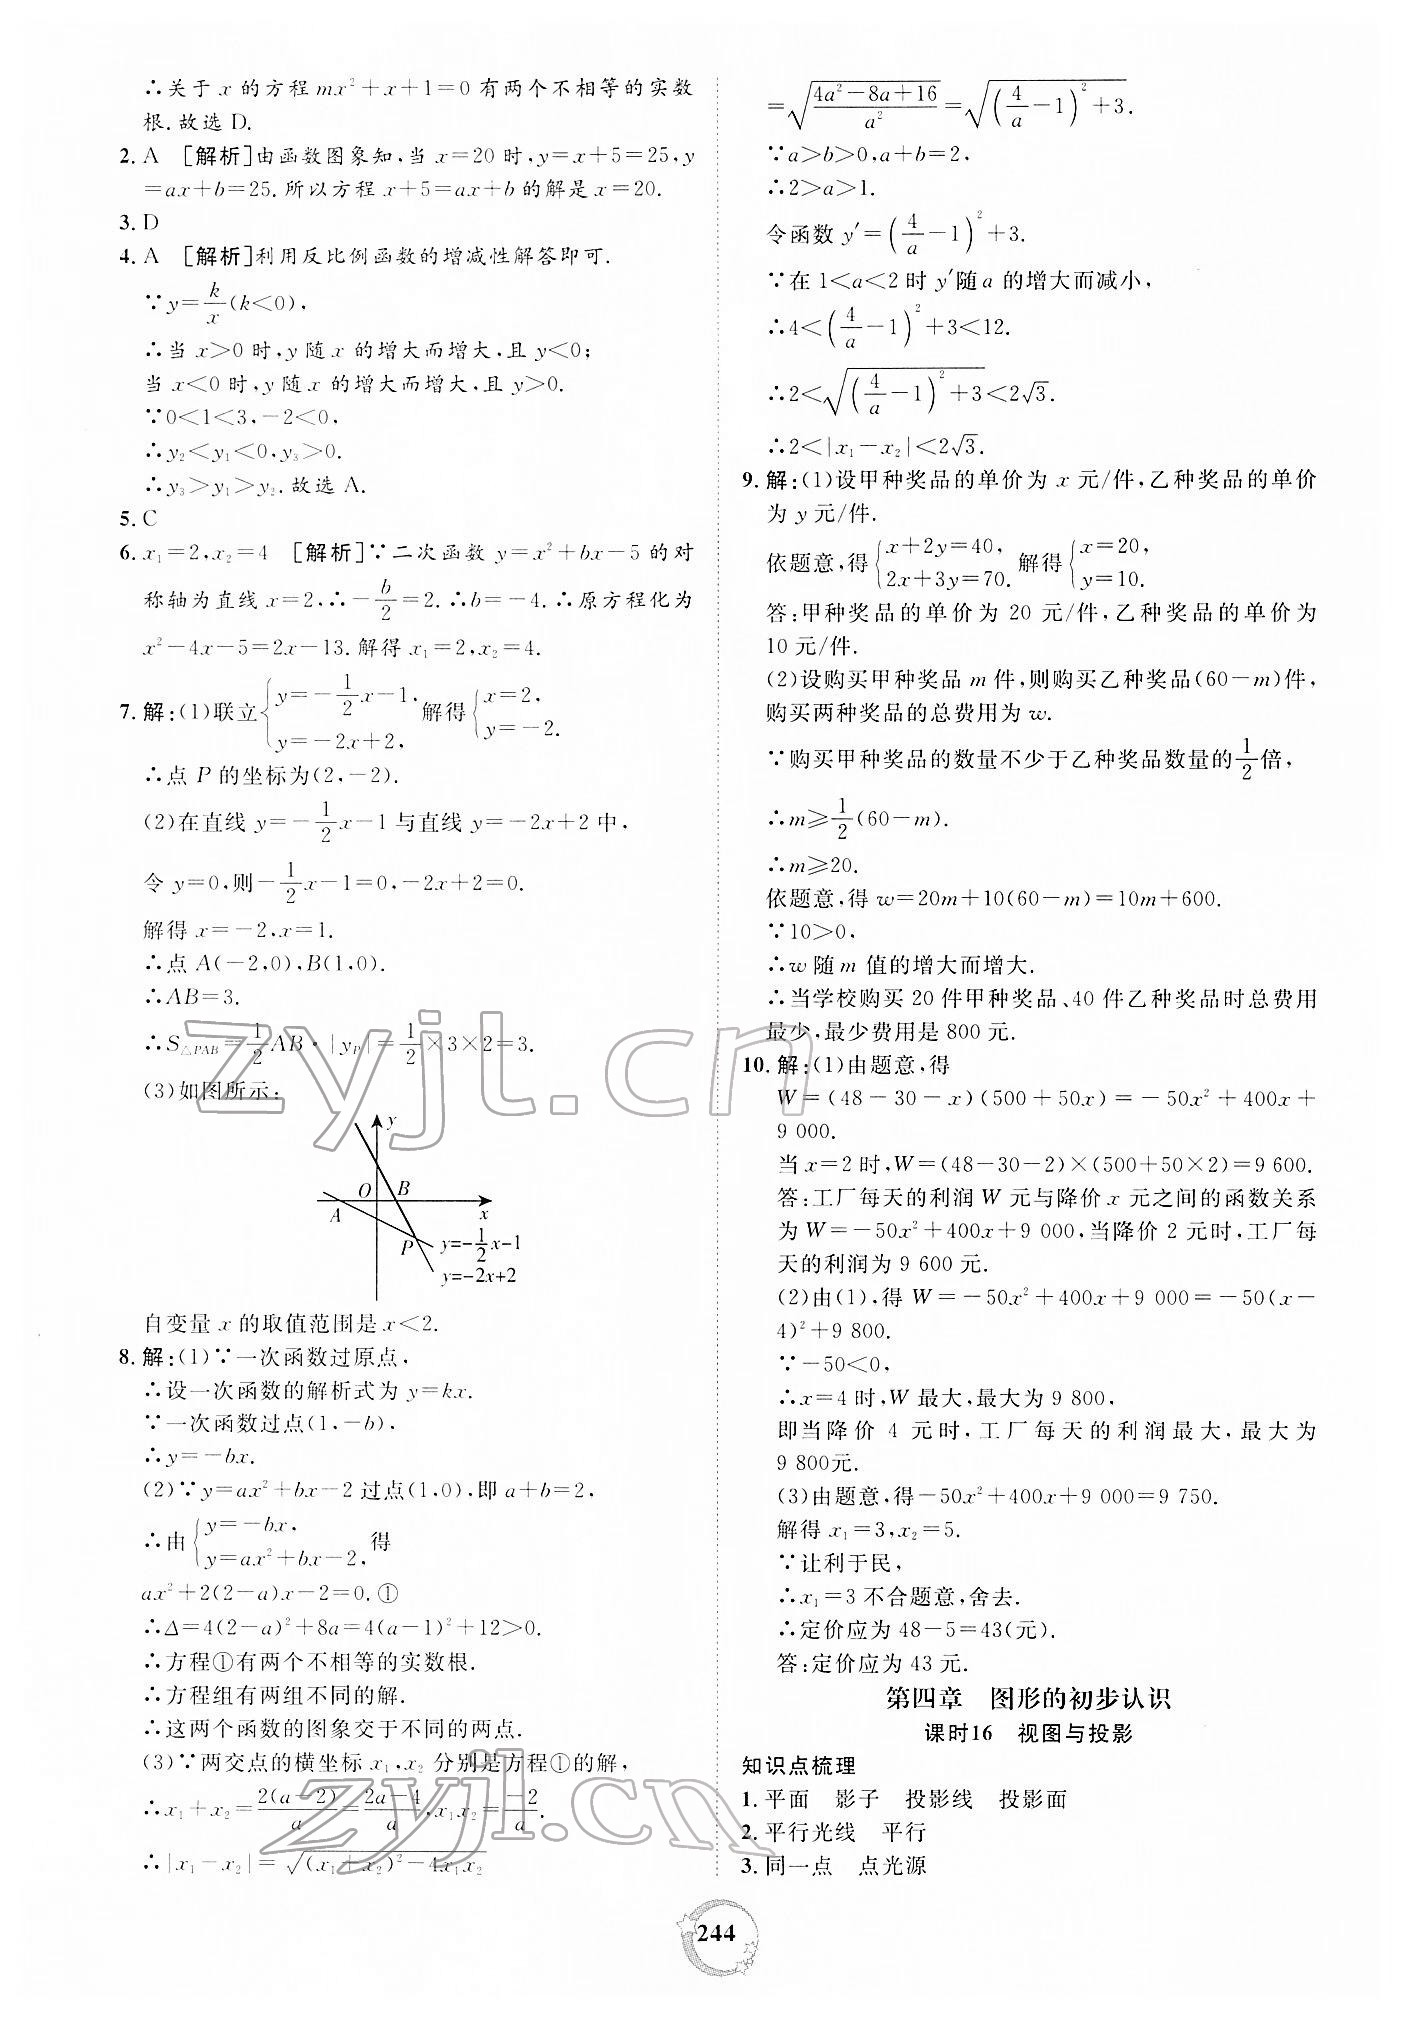 ∴关于 x 的方程 mx²+x+1=0 有两个不相等的实数
根.故选 D.
2. A [解析]由函数图象知,当 x=20 时,y=x+5=25,y
=ax+b=25.所以方程 x+5=ax+b 的解是 x=20.
3. D
4. A [解析]利用反比例函数的增减性解答即可.
∵y=k/x(k<0),
∴当 x>0 时,y 随 x 的增大而增大,且 y<0;
当 x<0 时,y 随 x 的增大而增大,且 y>0.
∵0<1<3,-2<0,
∴y₂<y₁<0,y₃>0.
∴y₃>y₁>y₂.故选 A.
5. C
6. x₁=2,x₂=4 [解析]∵二次函数 y=x²+bx-5 的对
称轴为直线 x=2,∴-b/2=2.∴b=-4.∴原方程化为
x²-4x-5=2x-13.解得 x₁=2,x₂=4.
7. 解:(1)联立{y=-1/2x-1, y=-2x+2, 解得{x=2, y=-2.
∴点 P 的坐标为(2,-2).
(2)在直线 y=-1/2x-1 与直线 y=-2x+2 中,
令 y=0,则-1/2x-1=0,-2x+2=0.
解得 x=-2,x=1.
∴点 A(-2,0),B(1,0).
∴AB=3.
∴S△PAB=1/2AB·|yP|=1/2×3×2=3.
(3)如图所示:
y
O B
A x
P y=-1/2x-1
y=-2x+2
自变量 x 的取值范围是 x<2.
8. 解:(1)∵一次函数过原点,
∴设一次函数的解析式为 y=kx.
∵一次函数过点(1,-b),
∴y=-bx.
(2)∵y=ax²+bx-2 过点(1,0),即 a+b=2,
∴由{y=-bx, y=ax²+bx-2, 得
ax²+2(2-a)x-2=0.①
∴Δ=4(2-a)²+8a=4(a-1)²+12>0.
∴方程①有两个不相等的实数根.
∴方程组有两组不同的解.
∴这两个函数的图象交于不同的两点.
(3)∵两交点的横坐标 x₁,x₂ 分别是方程①的解,
∴x₁+x₂=2(a-2)/a=2a-4/a,x₁x₂=-2/a.
∴|x₁-x₂|=√(x₁+x₂)²-4x₁x₂
=√(4a²-8a+16/a²)=√((4/a-1)²+3).
∵a>b>0,a+b=2,
∴2>a>1.
令函数 y′=(4/a-1)²+3.
∵在 1<a<2 时 y′随 a 的增大而减小,
∴4<(4/a-1)²+3<12.
∴2<√((4/a-1)²+3)<2√3.
∴2<|x₁-x₂|<2√3.
9. 解:(1)设甲种奖品的单价为 x 元/件,乙种奖品的单价
为 y 元/件.
依题意,得{x+2y=40, 2x+3y=70. 解得{x=20, y=10.
答:甲种奖品的单价为 20 元/件,乙种奖品的单价为
10 元/件.
(2)设购买甲种奖品 m 件,则购买乙种奖品(60-m)件,
购买两种奖品的总费用为 w.
∵购买甲种奖品的数量不少于乙种奖品数量的1/2倍,
∴m≥1/2(60-m).
∴m≥20.
依题意,得 w=20m+10(60-m)=10m+600.
∵10>0,
∴w 随 m 值的增大而增大.
∴当学校购买 20 件甲种奖品、40 件乙种奖品时总费用
最少,最少费用是 800 元.
10. 解:(1)由题意,得
W=(48-30-x)(500+50x)=-50x²+400x+
9 000.
当 x=2 时,W=(48-30-2)×(500+50×2)=9 600.
答:工厂每天的利润 W 元与降价 x 元之间的函数关系
为 W=-50x²+400x+9 000,当降价 2 元时,工厂每
天的利润为 9 600 元.
(2)由(1),得 W=-50x²+400x+9 000=-50(x-
4)²+9 800.
∵-50<0,
∴x=4 时,W 最大,最大为 9 800,
即当降价 4 元时,工厂每天的利润最大,最大为
9 800元.
(3)由题意,得-50x²+400x+9 000=9 750.
解得 x₁=3,x₂=5.
∵让利于民,
∴x₁=3 不合题意,舍去.
∴定价应为 48-5=43(元).
答:定价应为 43 元.
第四章 图形的初步认识
课时16 视图与投影
知识点梳理
1. 平面 影子 投影线 投影面
2. 平行光线 平行
3. 同一点 点光源
244
zyjl.cn
zyjl.cn